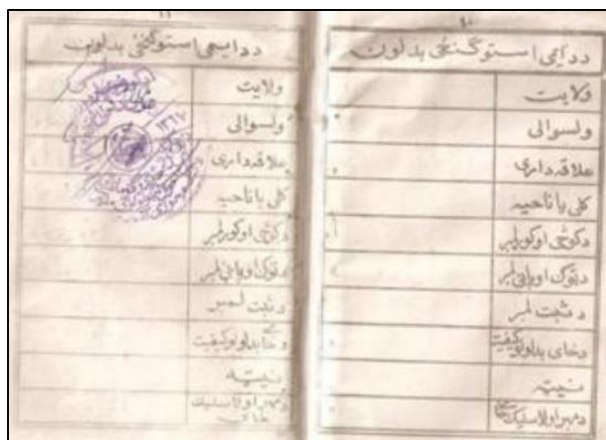 ۱۰
ددایمی استوګنځی بدلون
ولایت
ولسوالی
علاقه داری
کلی یا ناحیه
دکوڅی اوکورلمبر
دټوک اوپاڼی لمبر
د ثبت لمبر
دځای بدلولوکیفیت
نیټه
دمهر اولاسلیک ځای
۱۱
ددایمی استوګنځی بدلون
ولایت
ولسوالی
علاقه داری
کلی یا ناحیه
دکوڅی اوکورلمبر
دټوک اوپاڼی لمبر
د ثبت لمبر
دځای بدلولوکیفیت
نیټه
دمهر اولاسلیک
ځای